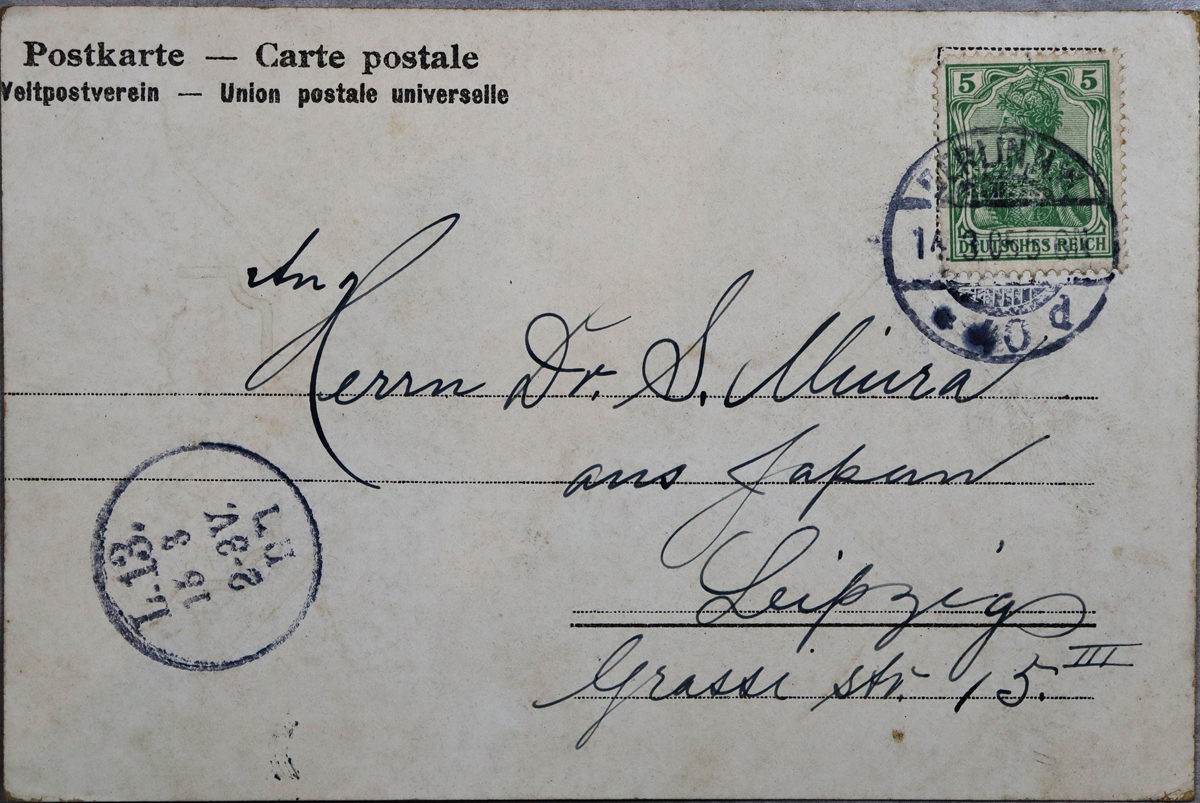 Postkarte — Carte postale
Weltpostverein — Union postale universelle
5 5
DEUTSCHES REICH
BERLIN N.
14.3.05 5-6N
d
An
Herrn Dr. S. Miura
aus Japan
Leipzig
Grassi str. 15. III
L.13.
15 3
2-3V.